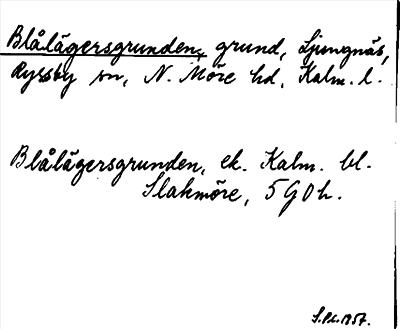 Blålägersgrunden, grund, Ljungnäs,
Ryssby sn, N. Möre hd, Kalm. l.
Blålägersgrunden, ek. Kalm. bl.
Slakmöre, 5 G 0 h.
S.Pl. 1957.